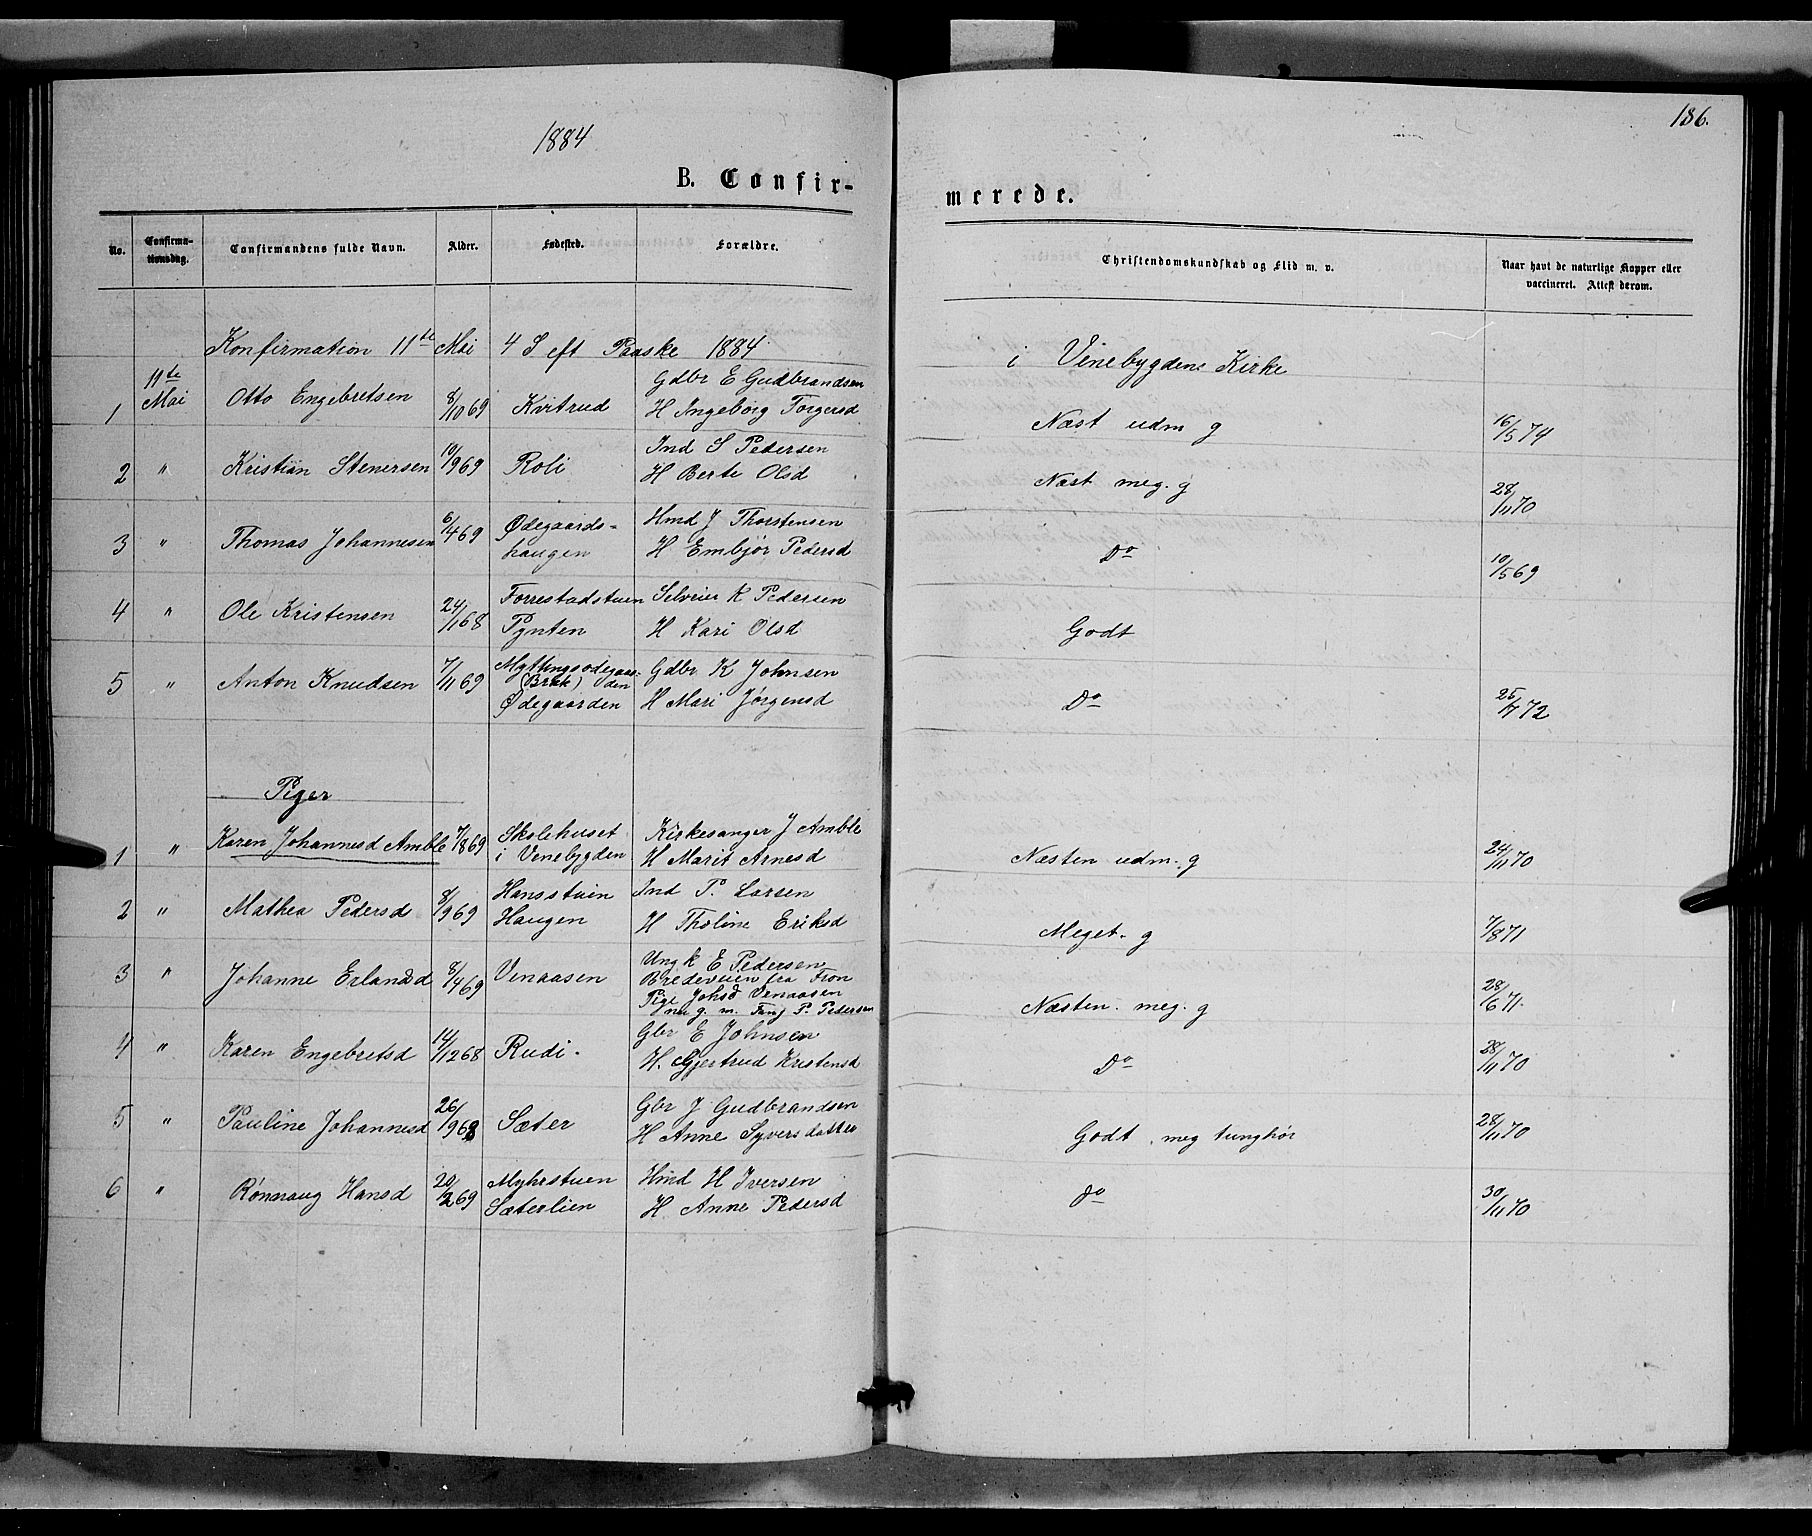 1884
186.
B. Confir-
merede.
No.
Confirma-
tionsdag.
Confirmandens fulde Navn.
Alder.
Fødested.
Forældre.
Christendomskundskab og Flid m. v.
Naar havt de naturlige Kopper eller
vaccineret. Attest derom.
Konfirmation 11te Mai 4 S eft Paaske 1884 i Venebygdens Kirke
11te
Mai
1 Otto Engebretsen 8/10 69 Kvitrud
Gdbr E Gudbrandsen
H Ingeborg Torgersd
Næst udm g 16/5 74
2 " Kristian Stenersen 10/9 69 Roli
Ind S Pedersen
H Berte Olsd
Næst meg. g 28/11 70
3 " Thomas Johannesen 6/4 69 Ødegaards-
haugen
Hmd J Thorstensen
H Embjør Pedersd
Do 10/5 69
4 " Ole Kristensen 24/1 68 Forrestadstuen
Pynten
Selveier K Pedersen
H Kari Olsd
Godt
5 " Anton Knudsen 7/11 69 Myttingsødegaar-
(Bræk) den
Ødegaarden
Gdbr K Johnsen
H Mari Jørgensd
Do 25/7 72
Piger
1 " Karen Johannesd Amble 7/8 69 Skolehuset
i Venebygden
Kirkesanger J Amble
H Marit Arnesd
Næsten udm. g 24/11 70
2 " Mathea Pedersd 8/9 69 Hansstuen
Haugen
Ind P. Larsen
H Tholine Eriksd
Meget. g 7/8 71
3 " Johanne Erlandsd 8/4 69 Venaasen
Ungk E Pedersen
Bredeveien fra Fron
Pige Johsd Venaasen
nu g. m. P. Pedersen
Næsten. meg. g 28/6 71.
4 " Karen Engebretsd 14/12 68 Rudi.
Gbr E Johnsen
H. Gjertrud Kristensd
Do 28/11 70
5 " Pauline Johannesd 26/9 68 Sæter
Gbr J Gudbrandsen
H Anne Syversdatter
Godt, meg tunghør 28/11 70
6 " Rønnaug Hansd 20/2 69 Myhrstuen
Sæterlien
Hmd H Iversen
H Anne Pedersd
do 30/11 70